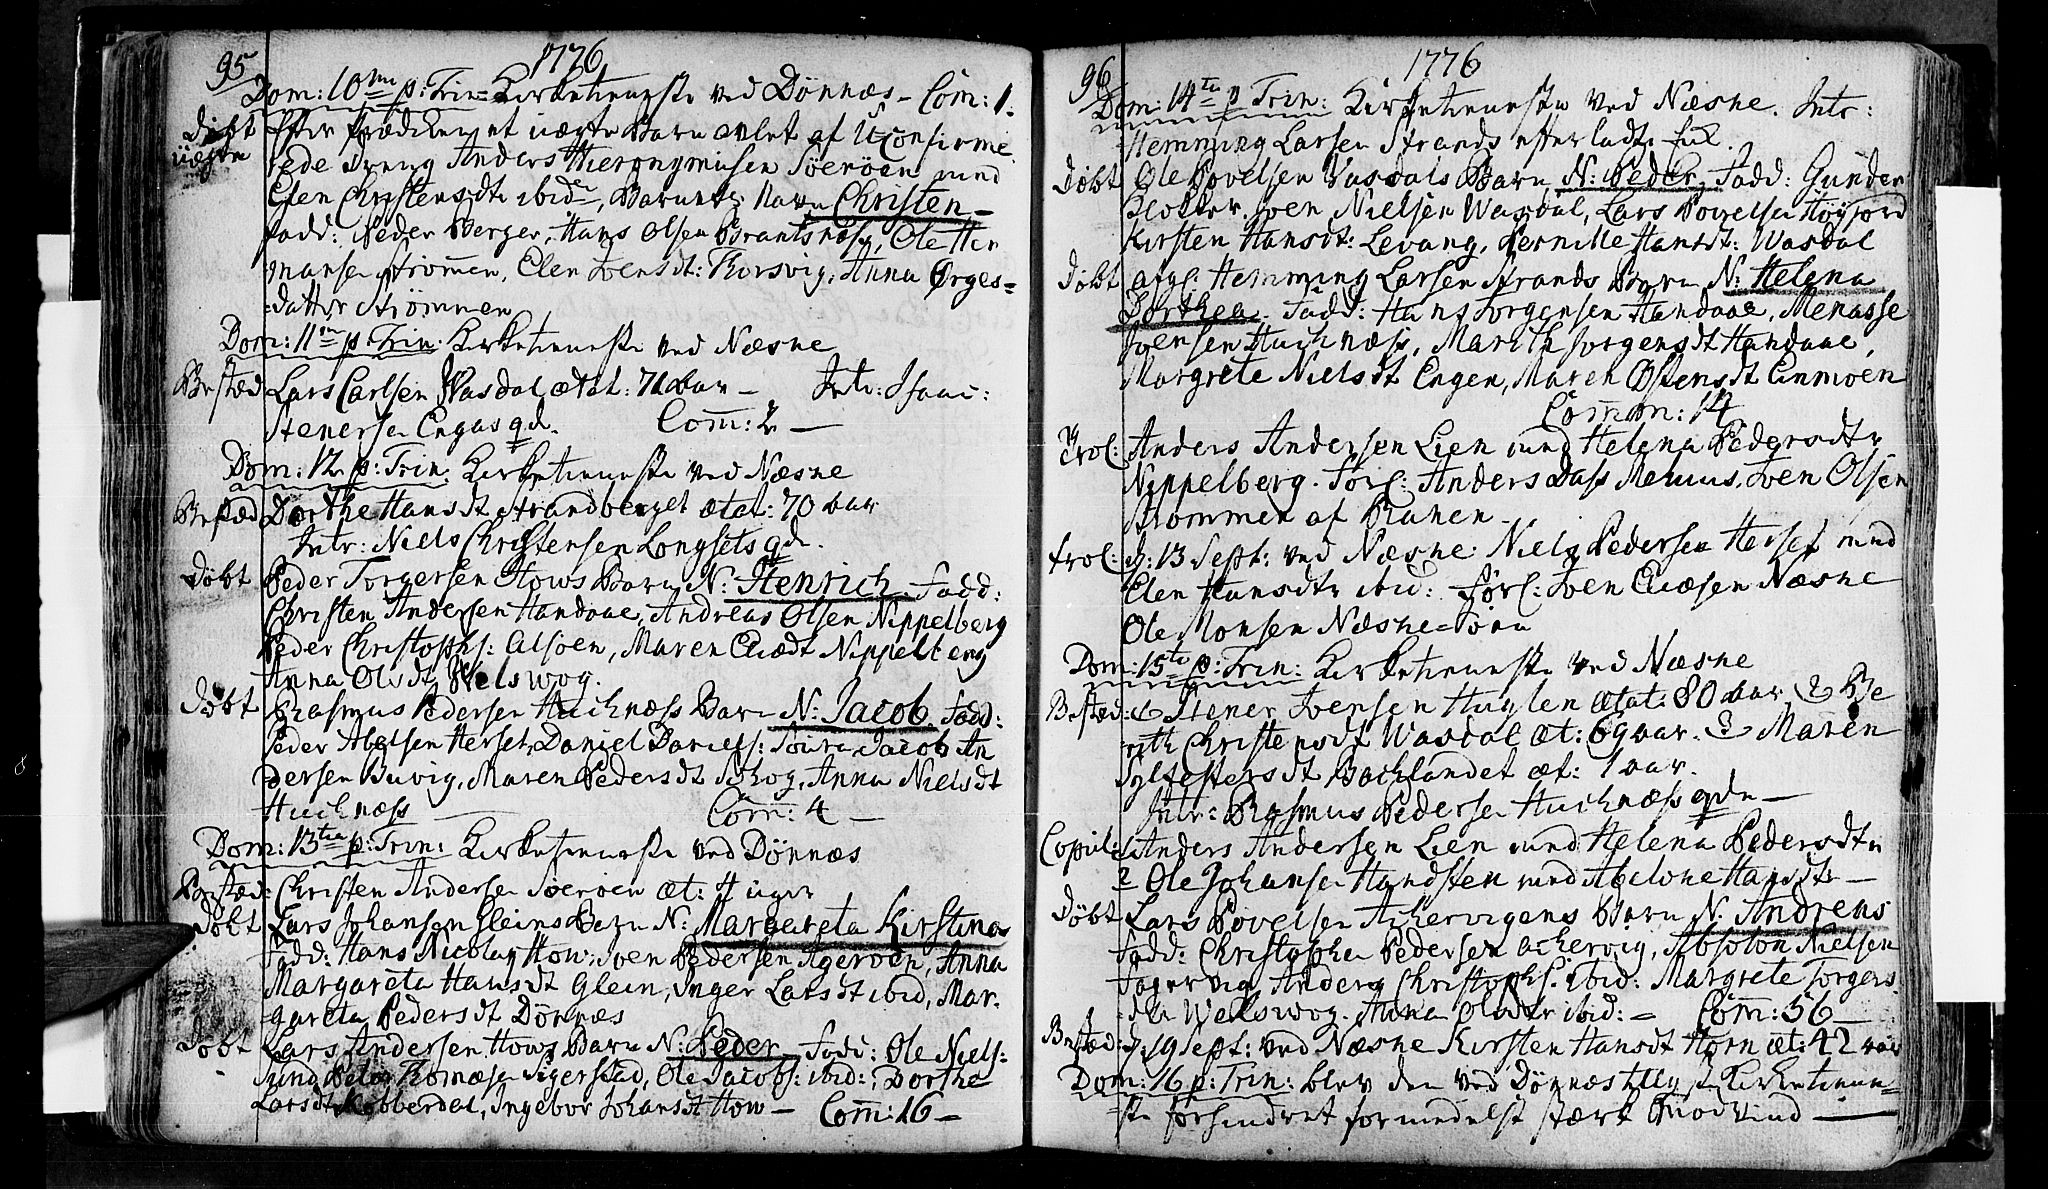 95
1776
Dom: 10me p: Trin: Kirketieneste ved Dönnæs – Com: 1.
döbt Efter Prædiken et uægte Barn avlet af UConfirme
uægte rede Dreng Anders Hieronymusen Söeröen med
Elen Christensdt ibid, Barnets Navn Christen –
Fadd: Peder Berger, Hans Olsen Brantsnæs, Ole Her
mansen Strömmen, Elen Ivensdt: Korsvig, Anna Örges=
=datter Strömmen
Dom: 11me p. Trin. Kirketieneste ved Næsne
Bested Lars Carlsen Wasdal ætat: 71 aar – Intr: Isaac:
Stenersen Engas qd. Com: 2 –
Dom: 12 p: Trin. Kirketieneste ved Næsne
Bested Dorthe Hansdt Strandberget ætat: 70 aar
Intr: Niels Christensen Longsets qd.
Döbt Peder Torgersen Hows Barn N: Henrich Fadd:
Christen Andersen Handaae, Andreas Olsen Nippelberg
Peder Christophs: Alsöen, Maren Eliædt Nippelberg
Anna Olsdt Welswog.
Döbt Rasmus Pedersen Huchnæss Barn N: Jacob Fadd:
Peder Abelsen Herset, Daniel Daniels: Jacob An
dersen Buvig, Maren Pedersdt Anna Nielsdt
Huchnæss Com: 4 –
Dom: 13tia p: Trin: Kirketieneste ved Dönnæs
Bested: Christen Andersen Söeröen æt: 4 uger
Döbt Lars Johansen Gleins Barn N: Margareta Kirstina
Fadd: Hans Nicolay How, Iven Pedersen Ageröen, Anna
Margareta Hansdt Glein, Inger Larsdt ibid, Mar=
=gareta Pedersdt Dönnæs
Döbt Lars Andersen Hows Barn N: Peder Fadd: Ole Niels:
Sund Thomæsen Sigerstad, Ole Jacobs: ibid:, Dorthe
Larsdt Kobberdal, Ingebor Johansdt How – Com: 16 –
96
1776
Dom: 14te p Trin: Kirketieneste ved Næsne. Intr:
Hemming Larsen Strands efterladte
Döbt Ole Povelsen Wasdals Barn N: Peder, Fadd: Gunder
Klokker. Iven Nielsen Wasdal, Lars Povelsen Höyford
Kirsten Hansdt: Levang, Pernille Hansdt: Wasdal
Döbt afgl: Hemming Larsen Strands Barn N: Helena
Dorthea. Fadd: Hans Jorgensen Handaae, Menasse
Ivensen Huchnæss, Marith Jorgensdt Handaae,
Margrete Nielsdt Engen, Maren Östensdt Einmoen
Common: 14
Trol: Anders Andersen Lien med Helena Pedersdtr
Nippelberg. Forl: Anders Dass Iven Olsen
Strommen af Ranen –
Trol: d: 13 Sept: ved Næsne: Niels Pedersen Herset med
Elen Hansdtr ibid: Forl: Iven Eliæsen Næsne
Ole Monsen Næsne=
Dom: 15te p: Trin: Kirketieneste ved Næsne
Bested: 1 Stener Ivensen Huglen ætat: 80 aar, 2 Be
rith Christensdt Wasdal æt: 69 aar. 3 Maren
Sylfestersdt Bachlandet æt: 1 aar.
Intr: Rasmus Pedersen Huchnæss qde –
Copul: 1 Anders Andersen Lien med Helena Pedersdtr
2 Ole Johansen Handsten med Abelone Hansdtr –
Döbt Lars Povelsen Achervigens Barn N: Andreas
Fadd: Christopher Pedersen Achervig, Absolon Nielsen
Fagervig, Anders Christophs: ibid: Margrete Torgers
=dtr Welswog. Anna Olsdtr ibid: – Com: 56 –
Bested: d: 19 Sept: ved Næsne Kirsten Hansdt Horn æt: 42 aar
Dom: 16 p: Trin: blev den ved Dönnæs Kirketiene=
=ste forhindret formedelst stærk Modvind –